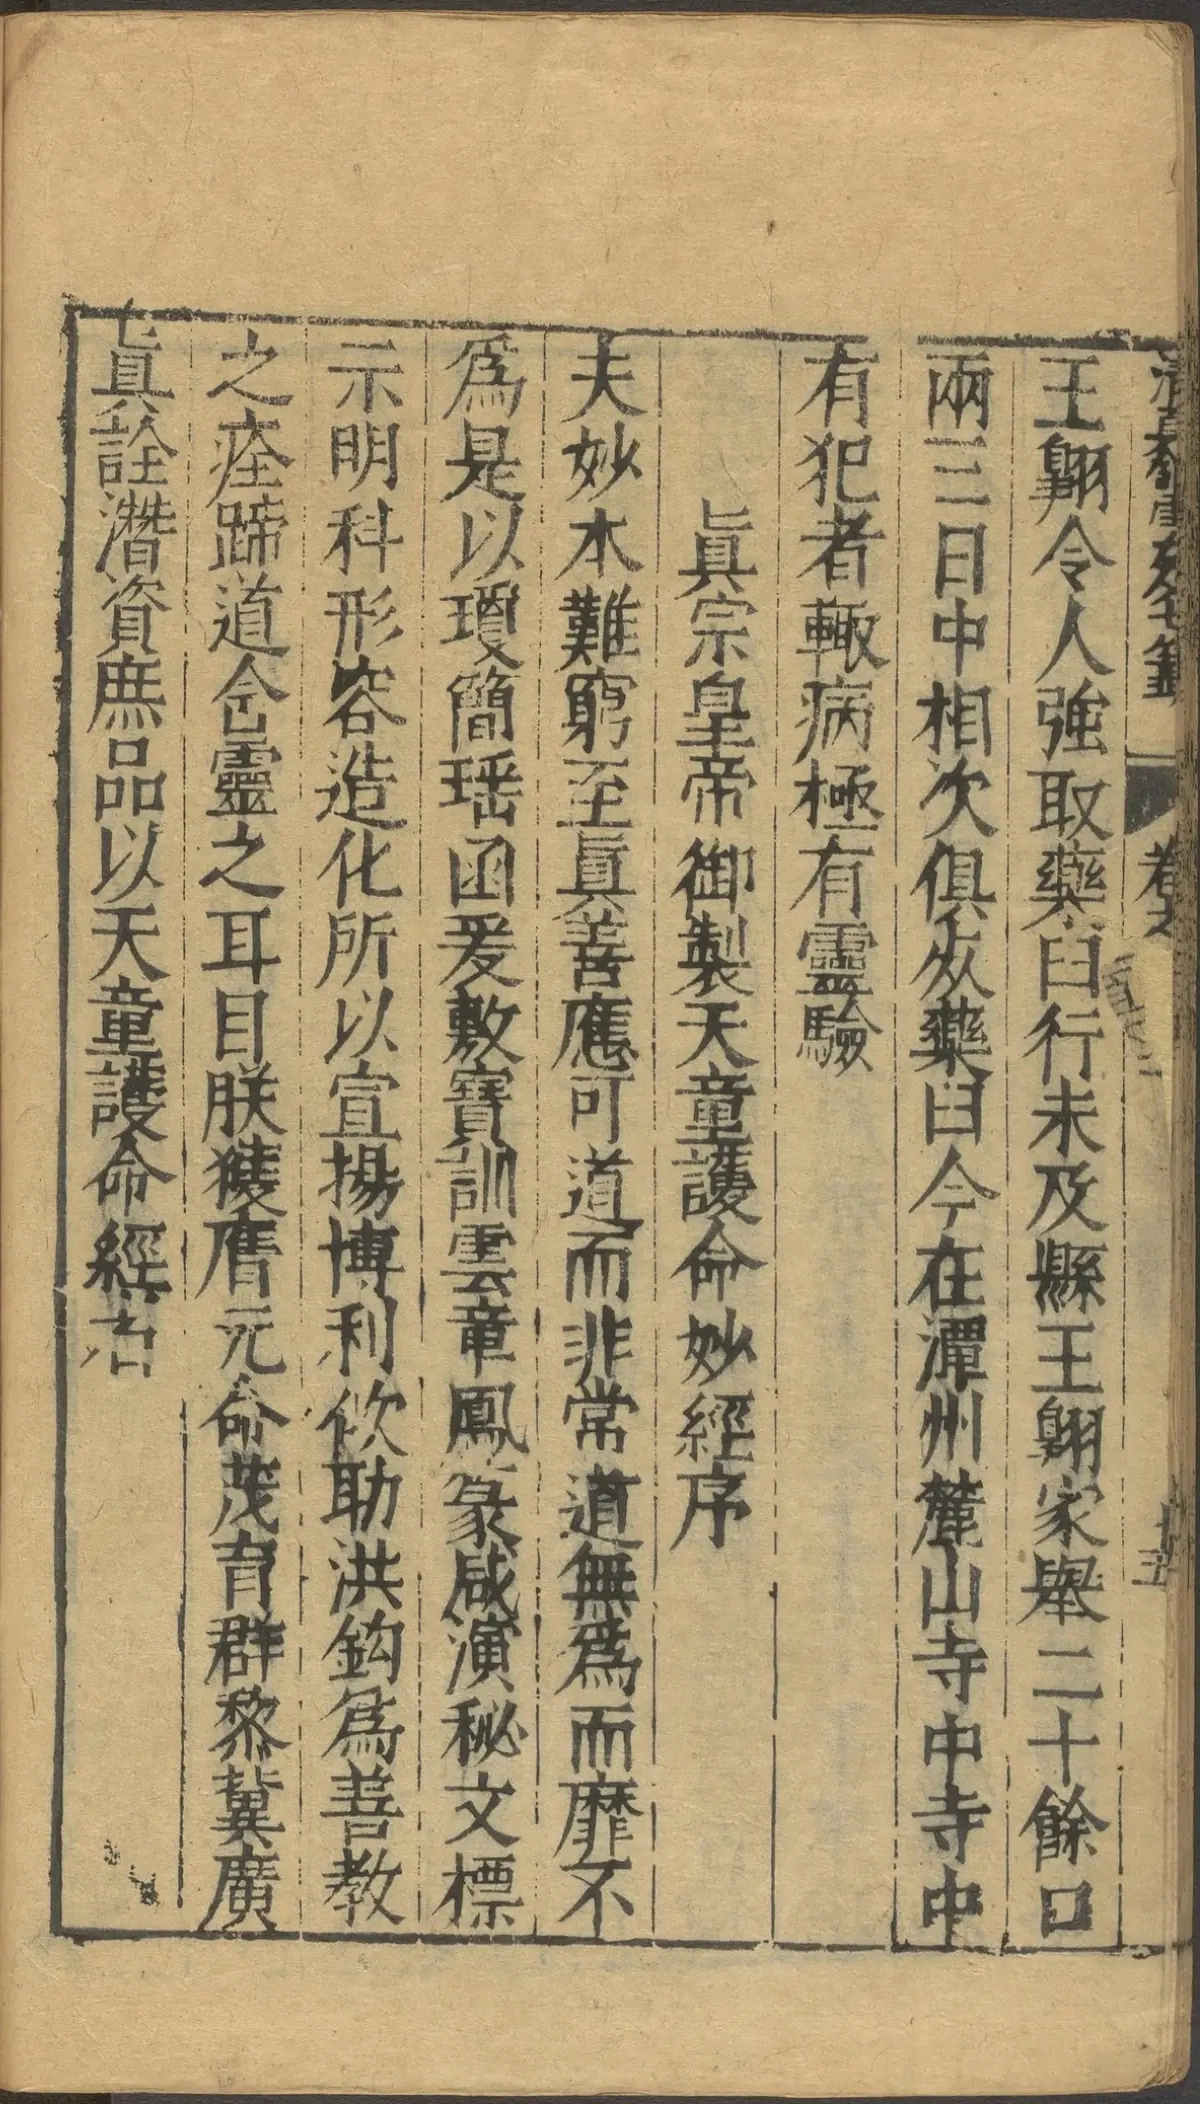 王翱令人強取藥臼行未及縣王翱家舉二十餘口
兩三日中相次俱死藥臼今在潭州麓山寺中寺中
有犯者輙病極有靈驗
眞宗皇帝御製天童護命妙經序
夫妙本難窮至眞善應可道而非常道無爲而靡不
爲是以瓊簡瑶函爰敷寶訓雲章鳳篆咸演秘文標
示明科形容造化所以宣揚博利佽助洪鈞爲善教
之痊蹄道含靈之耳目朕獲膺元命茂育群黎冀廣
眞詮潛資庶品以天童護命經